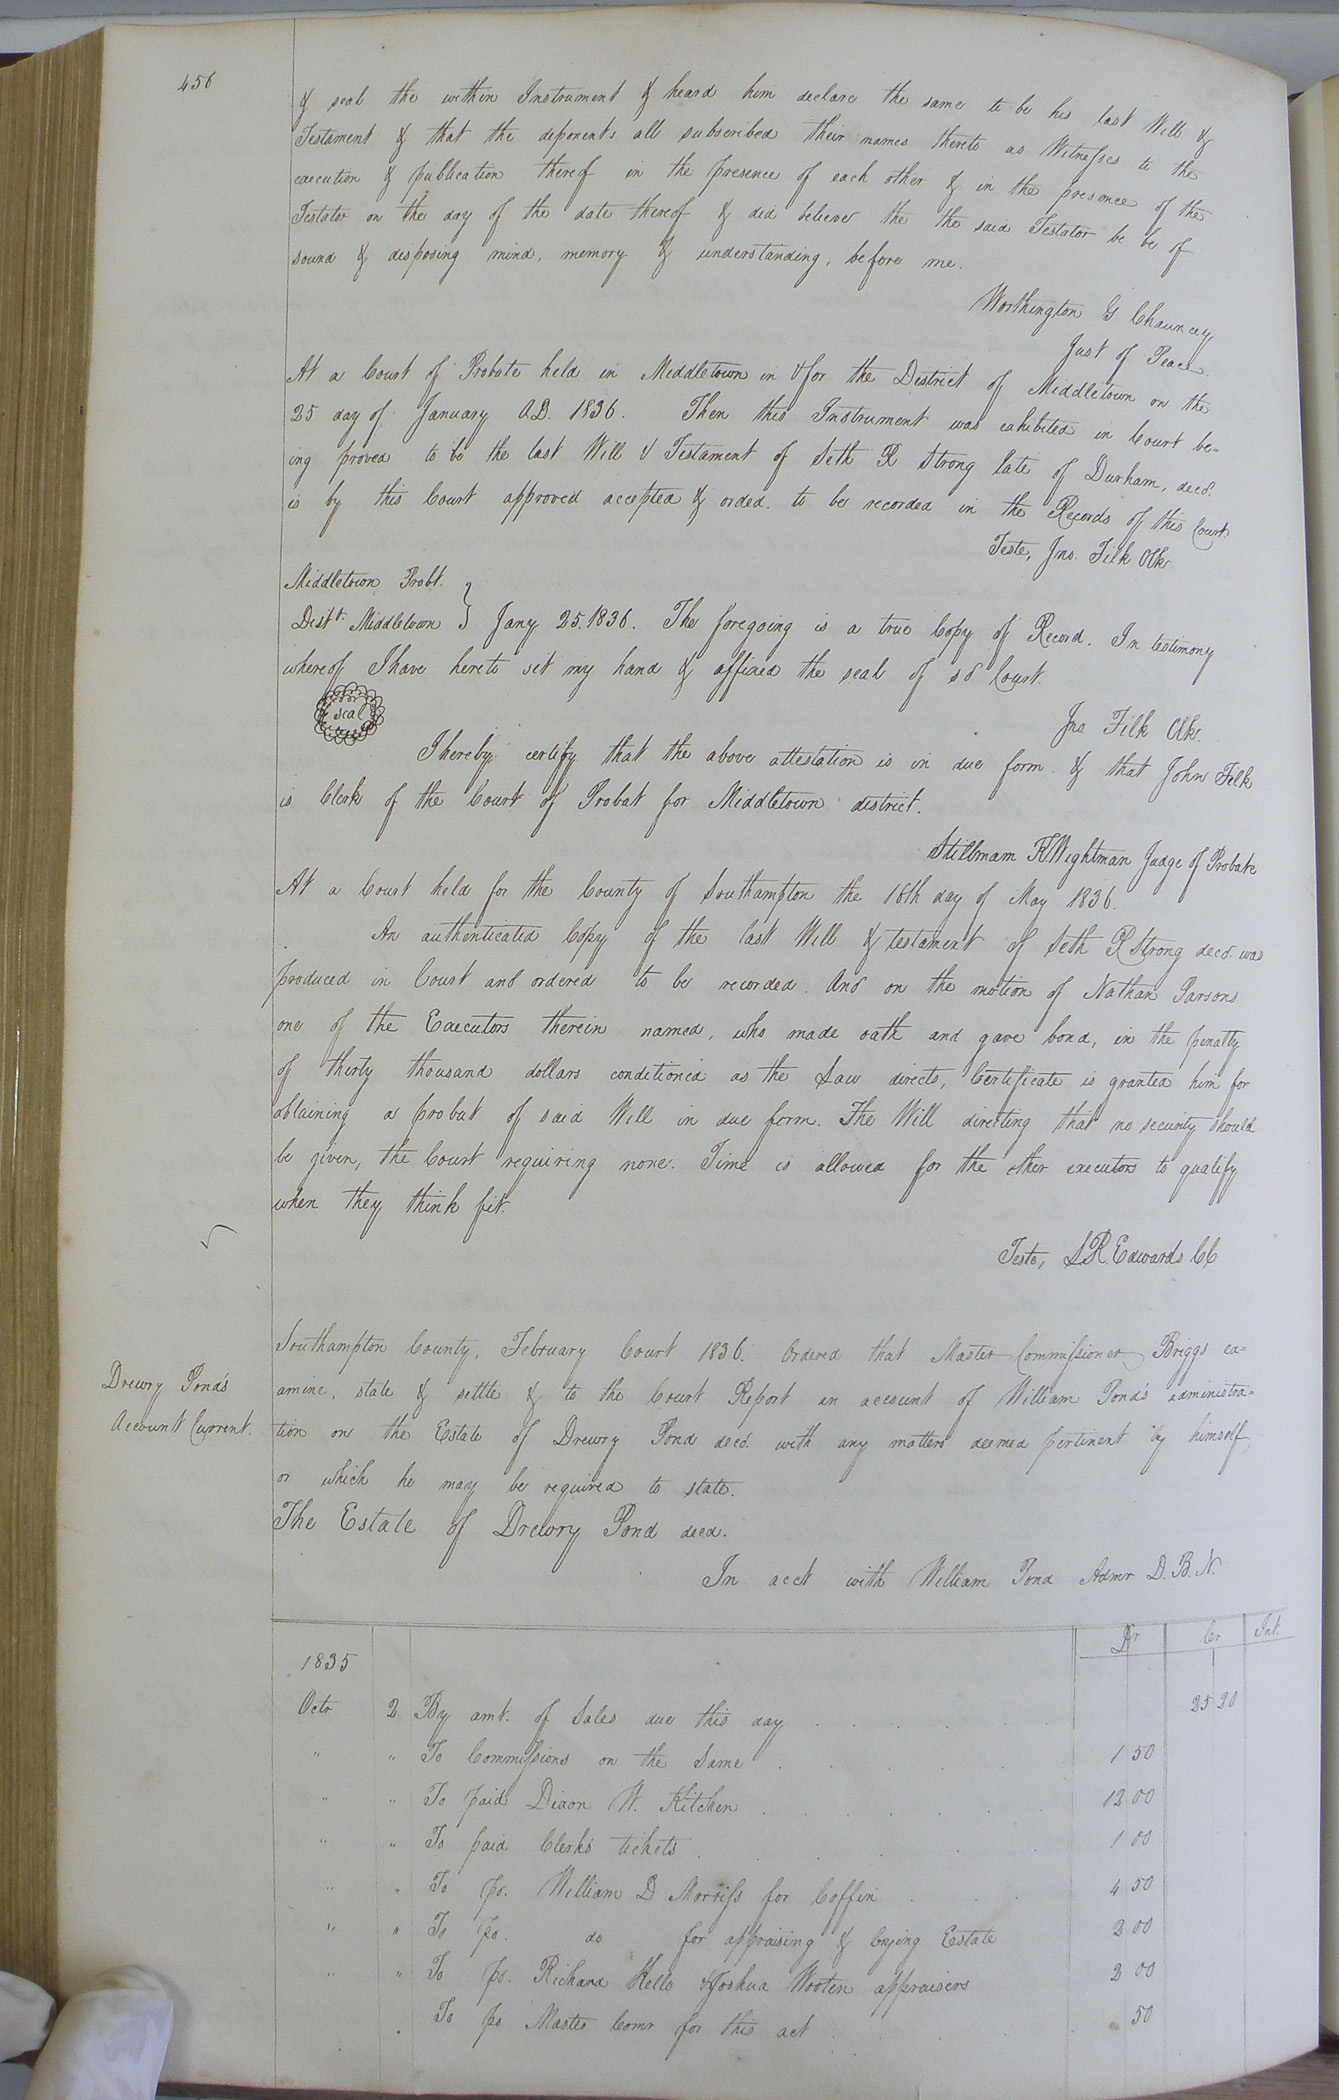 456
& seal the within Instrument & heard him declare the same to be his last Will &
Testament & that the deponents all subscribed their names thereto as Witnesses to the
execution & publication thereof in the presence of each other & in the presence of the
Testator on the day of the date thereof & did believe the the said Testator be be of
sound & disposing mind, memory & understanding, before me.
Worthington G Chauncey
Just of Peace.
At a Court of Probate held in Middletown in & for the District of Middletown on the
25 day of January A.D. 1836. Then this Instrument was exhibited in Court be-
ing proved to be the last Will & Testament of Seth R Strong late of Durham, decd.
is by this Court approved accepted & orded. to be recorded in the Records of this Court.
Teste, Jno. Filk Clk
Middletown Probt.
Distt. Middletown } Jany 25. 1836. The foregoing is a true Copy of Record. In testimony
whereof I have hereto set my hand & affixed the seal of sd Court.
seal
Jno Filk Clk.
I hereby certify that the above attestation is in due form & that John Filk
is Clerk of the Court of Probat for Middletown district.
Stillmam K Wightman Judge of Probate
At a Court held for the County of Southampton the 16th day of May 1836.
An authenticated Copy of the last Will & testament of Seth R Strong decd. was
produced in Court and ordered to be recorded. And on the motion of Nathan Parsons
one of the Executors therein named, who made oath and gave bond, in the penalty
of thirty thousand dollars conditioned as the Law directs, Certificate is granted him for
obtaining a probat of said Will in due form. The Will directing that no security should
be given, the Court requiring none. Time is allowed for the other executors to qualify
when they think fit.
Teste, L R. Edwards CC
Drewry Pond's
Account Current.
Southampton County, February Court 1836. Ordered that Master Commissioner Briggs ex-
amine, state & settle & to the Court Report an account of William Pond's administra-
tion on the Estate of Drewry Pond decd. with any matters deemed pertinent by himself,
or which he may be required to state.
The Estate of Drewry Pond decd.
In acct with William Pond Admr D. B. N.
Dr Cr Int.
1835
Octr 2 By amt. of Sales due this day 25 20
" " To Commissions on the Same 1 50
" " To paid Dixon W. Kitchen 12 00
" " To paid Clerks tickets 1 00
" " To pd. William D Morriss for Coffin 4 50
" " To pd. do for appraising & crying Estate 2 00
" " To pd. Richard Kello & Joshua Wooten appraisers 2 00
To pd Master Comr for this act 50